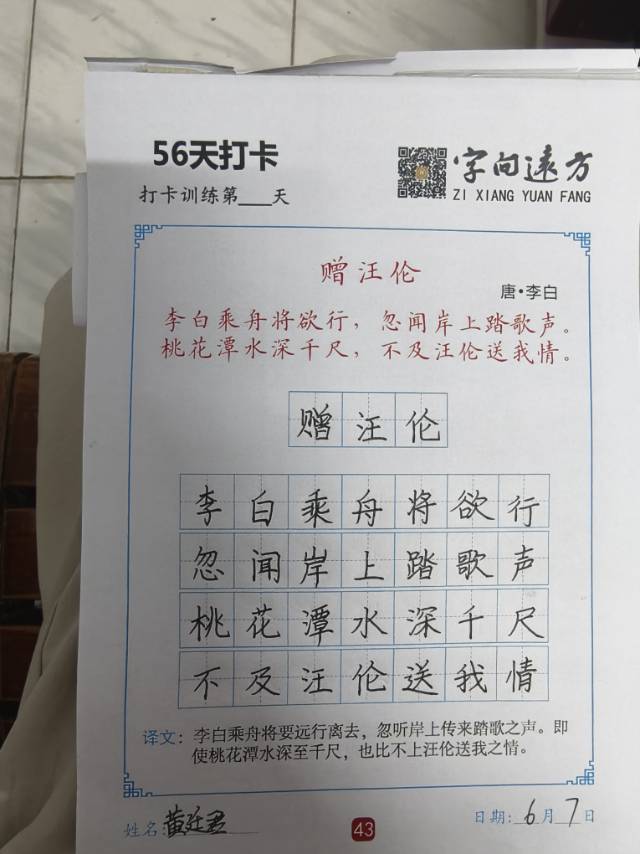 56天打卡
打卡训练第____天
字向远方
ZI XIANG YUAN FANG
赠汪伦
唐·李白
李白乘舟将欲行，忽闻岸上踏歌声。
桃花潭水深千尺，不及汪伦送我情。
赠汪伦
李白乘舟将欲行
忽闻岸上踏歌声
桃花潭水深千尺
不及汪伦送我情
译文：李白乘舟将要远行离去，忽听岸上传来踏歌之声。即
使桃花潭水深至千尺，也比不上汪伦送我之情。
姓名：黄廷君
43
日期：6月7日